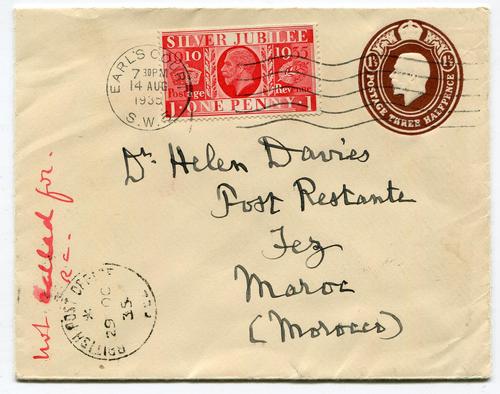 SILVER JUBILEE
1910 1935
Postage Revenue
1 ONE PENNY 1
EARL'S COURT
7 30PM
14 AUG
1935
S.W.5
1½ 1½
POSTAGE THREE HALFPENCE
Dr. Helen Davies
Post Restante
Fez
Maroc
(Morocco)
not called for.
BRITISH POST OFFICE
29 OC
35
FEZ